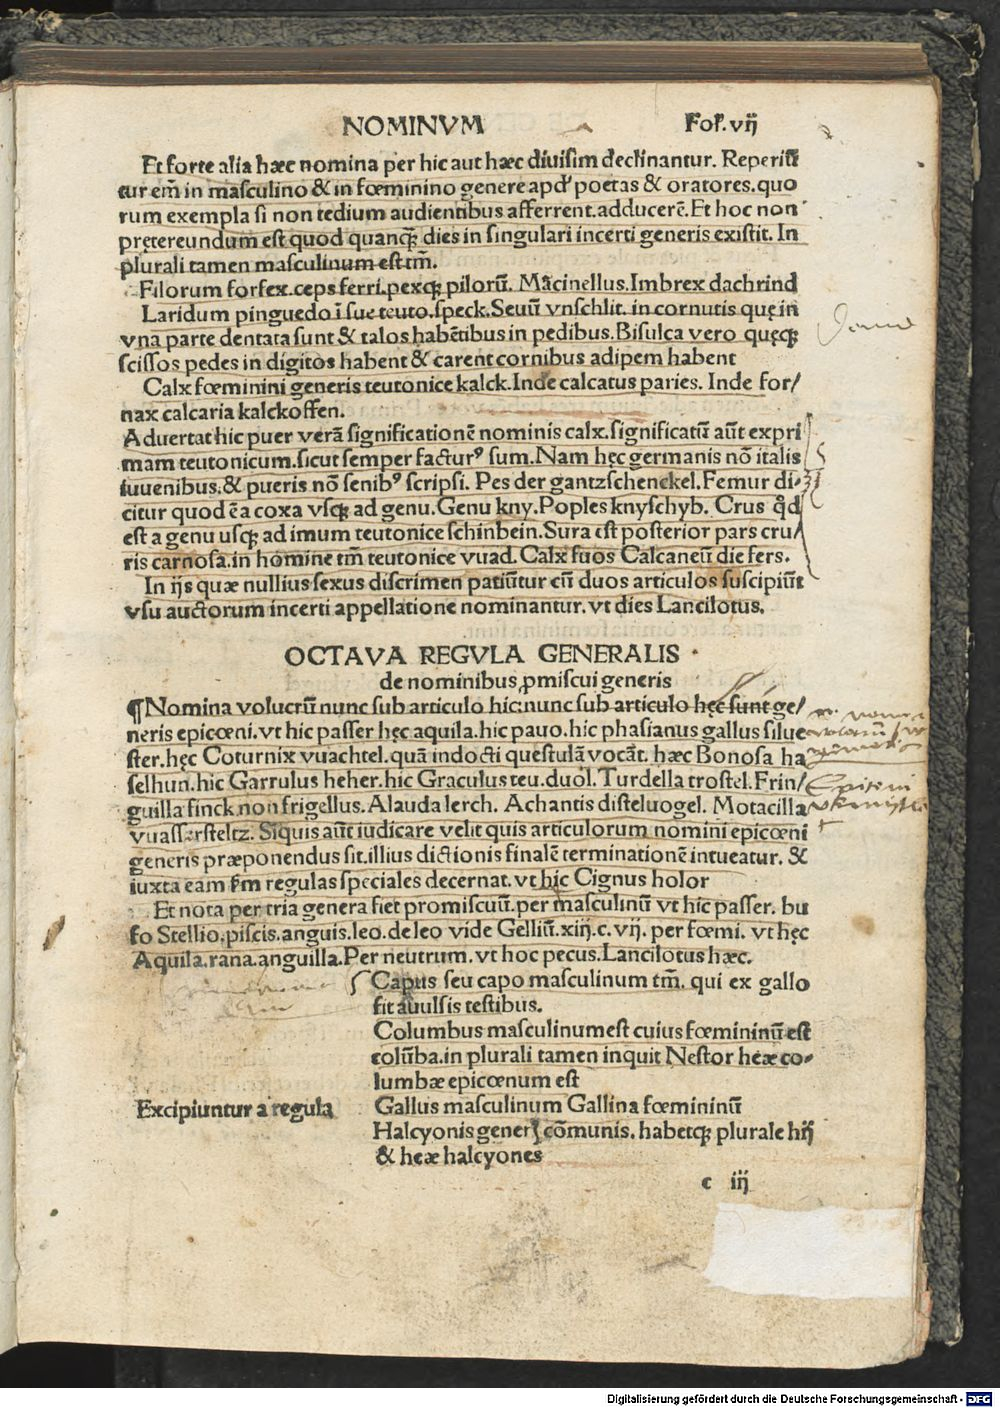 NOMINVM Fol. vij
Et forte alia hæc nomina per hic aut hæc diuisim declinantur. Reperiũ
tur em̃ in masculino & in fœminino genere apd' poetas & oratores. quo
rum exempla si non tedium audientibus afferrent. adducerẽ. Et hoc non
prętereundum est quod quanqꝫ dies in singulari incerti generis existit. In
plurali tamen masculinum est tm̃.
Filorum forfex. ceps ferri. pexqꝫ pilorũ. Mãcinellus. Imbrex dachrind
Laridum pinguedo ĩ sue teuto. speck. Seuũ vnschlit. in cornutis quę in
vna parte dentata sunt & talos habẽtibus in pedibus. Bisulca vero quęqꝫ
scissos pedes in digitos habent & carent cornibus adipem habent
Calx fœminini generis teutonice kalck. Inde calcatus paries. Inde for/
nax calcaria kalckoffen.
Aduertat hic puer verã significationẽ nominis calx. significatiũ aũt expri
mam teutonicum. sicut semper facturꝰ sum. Nam hęc germanis nõ italis
iuuenibus. & pueris nõ senibꝰ scripsi. Pes der gantzschenckel. Femur di-
citur quod ẽ a coxa vsqꝫ ad genu. Genu kny. Poples knyschyb. Crus qd̊
est a genu usqꝫ ad imum teutonice schinbein. Sura est posterior pars cru/
ris carnosa. in homine tm̃ teutonice vuad. Calx fuos Calcaneũ die fers.
In ijs quæ nullius sexus discrimen patiũtur cũ duos articulos suscipiũt
vsu auctorum incerti appellatione nominantur. vt dies Lancilotus.
OCTAVA REGVLA GENERALIS
de nominibus ꝓmiscui generis
¶ Nomina volucrũ nunc sub articulo hic: nunc sub articulo hęc sunt ge/
neris epicœni. vt hic passer hęc aquila. hic pauo. hic phasianus gallus silue
ster. hęc Coturnix vuachtel. quã indocti questulã vocãt. hæc Bonosa ha
selhun. hic Garrulus heher. hic Graculus teu. duol. Turdella trostel. Frin/
guilla finck non frigellus. Alauda lerch. Achantis disteluogel. Motacilla
vuassersteltz. Siquis aũt iudicare velit quis articulorum nomini epicœni
generis præponendus sit. illius dictionis finalẽ terminationẽ intueatur. &
iuxta eam ẜm regulas speciales decernat. vt hic Cignus holor
Et nota per tria genera fiet promiscuũ. per masculinũ vt hic passer. bu
fo Stellio. piscis. anguis. leo. de leo vide Gelliũ. xiij. c. vij. per fœmi. vt hęc
Aquila. rana. anguilla. Per neutrum. vt hoc pecus. Lancilotus hæc.
Capus seu capo masculinum tm̃. qui ex gallo
fit auulsis testibus.
Columbus masculinum est cuius fœmininũ est
colũba. in plurali tamen inquit Nestor heæ co-
lumbæ epicœnum est
Excipiuntur a regula Gallus masculinum Gallina fœmininũ
Halcyonis generꝭ cõmunis. habetqꝫ plurale hij
& heæ halcyones
c iij
Digitalisierung gefördert durch die Deutsche Forschungsgemeinschaft - DFG